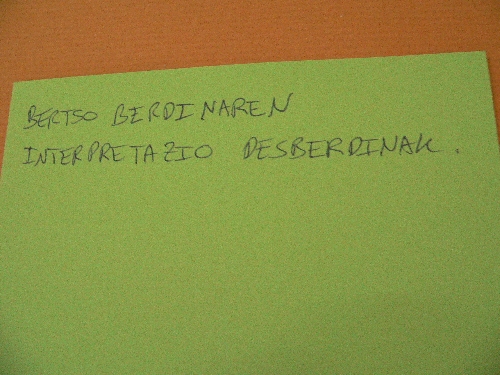 BERTSO BERDINAREN
INTERPRETAZIO DESBERDINAK.